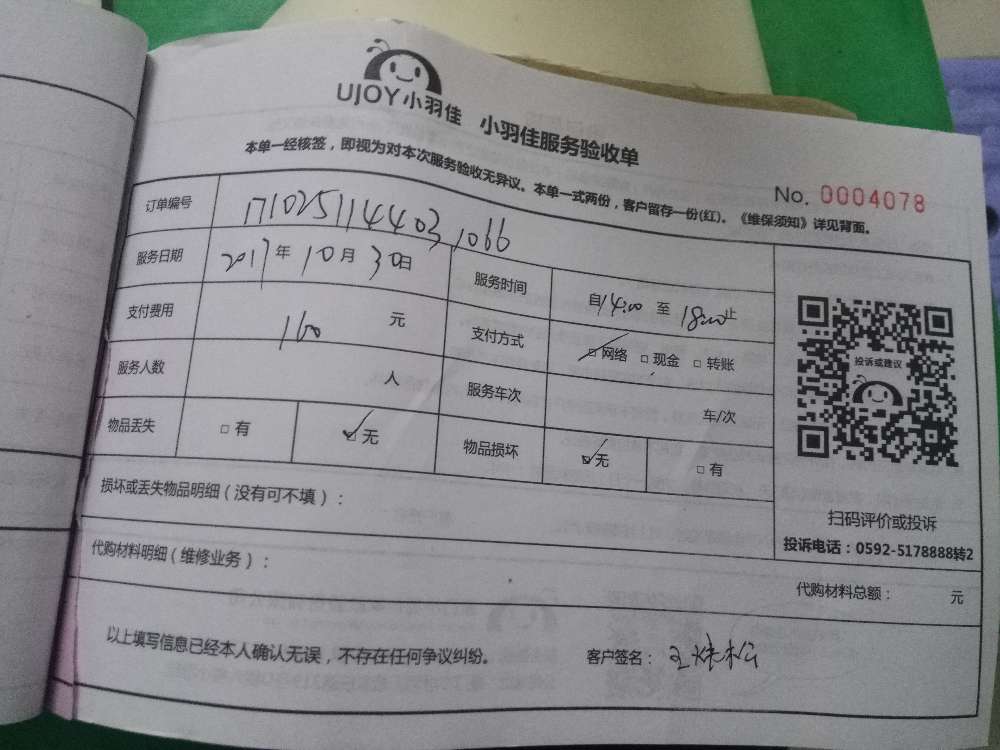 UJOY小羽佳 小羽佳服务验收单
本单一经核签，即视为对本次服务验收无异议。本单一式两份，客户留存一份(红)。《维保须知》详见背面。
No. 0004078
订单编号 1710251144031066
服务日期 2017年10月30日 服务时间 自14:00至18:00止
支付费用 160 元 支付方式 □网络 □现金 □转账
服务人数 人 服务车次 车/次
物品丢失 □有 ☑无 物品损坏 ☑无 □有
投诉或建议
扫码评价或投诉
投诉电话：0592-5178888转2
损坏或丢失物品明细（没有可不填）：
代购材料明细（维修业务）：
代购材料总额： 元
以上填写信息已经本人确认无误，不存在任何争议纠纷。 客户签名：